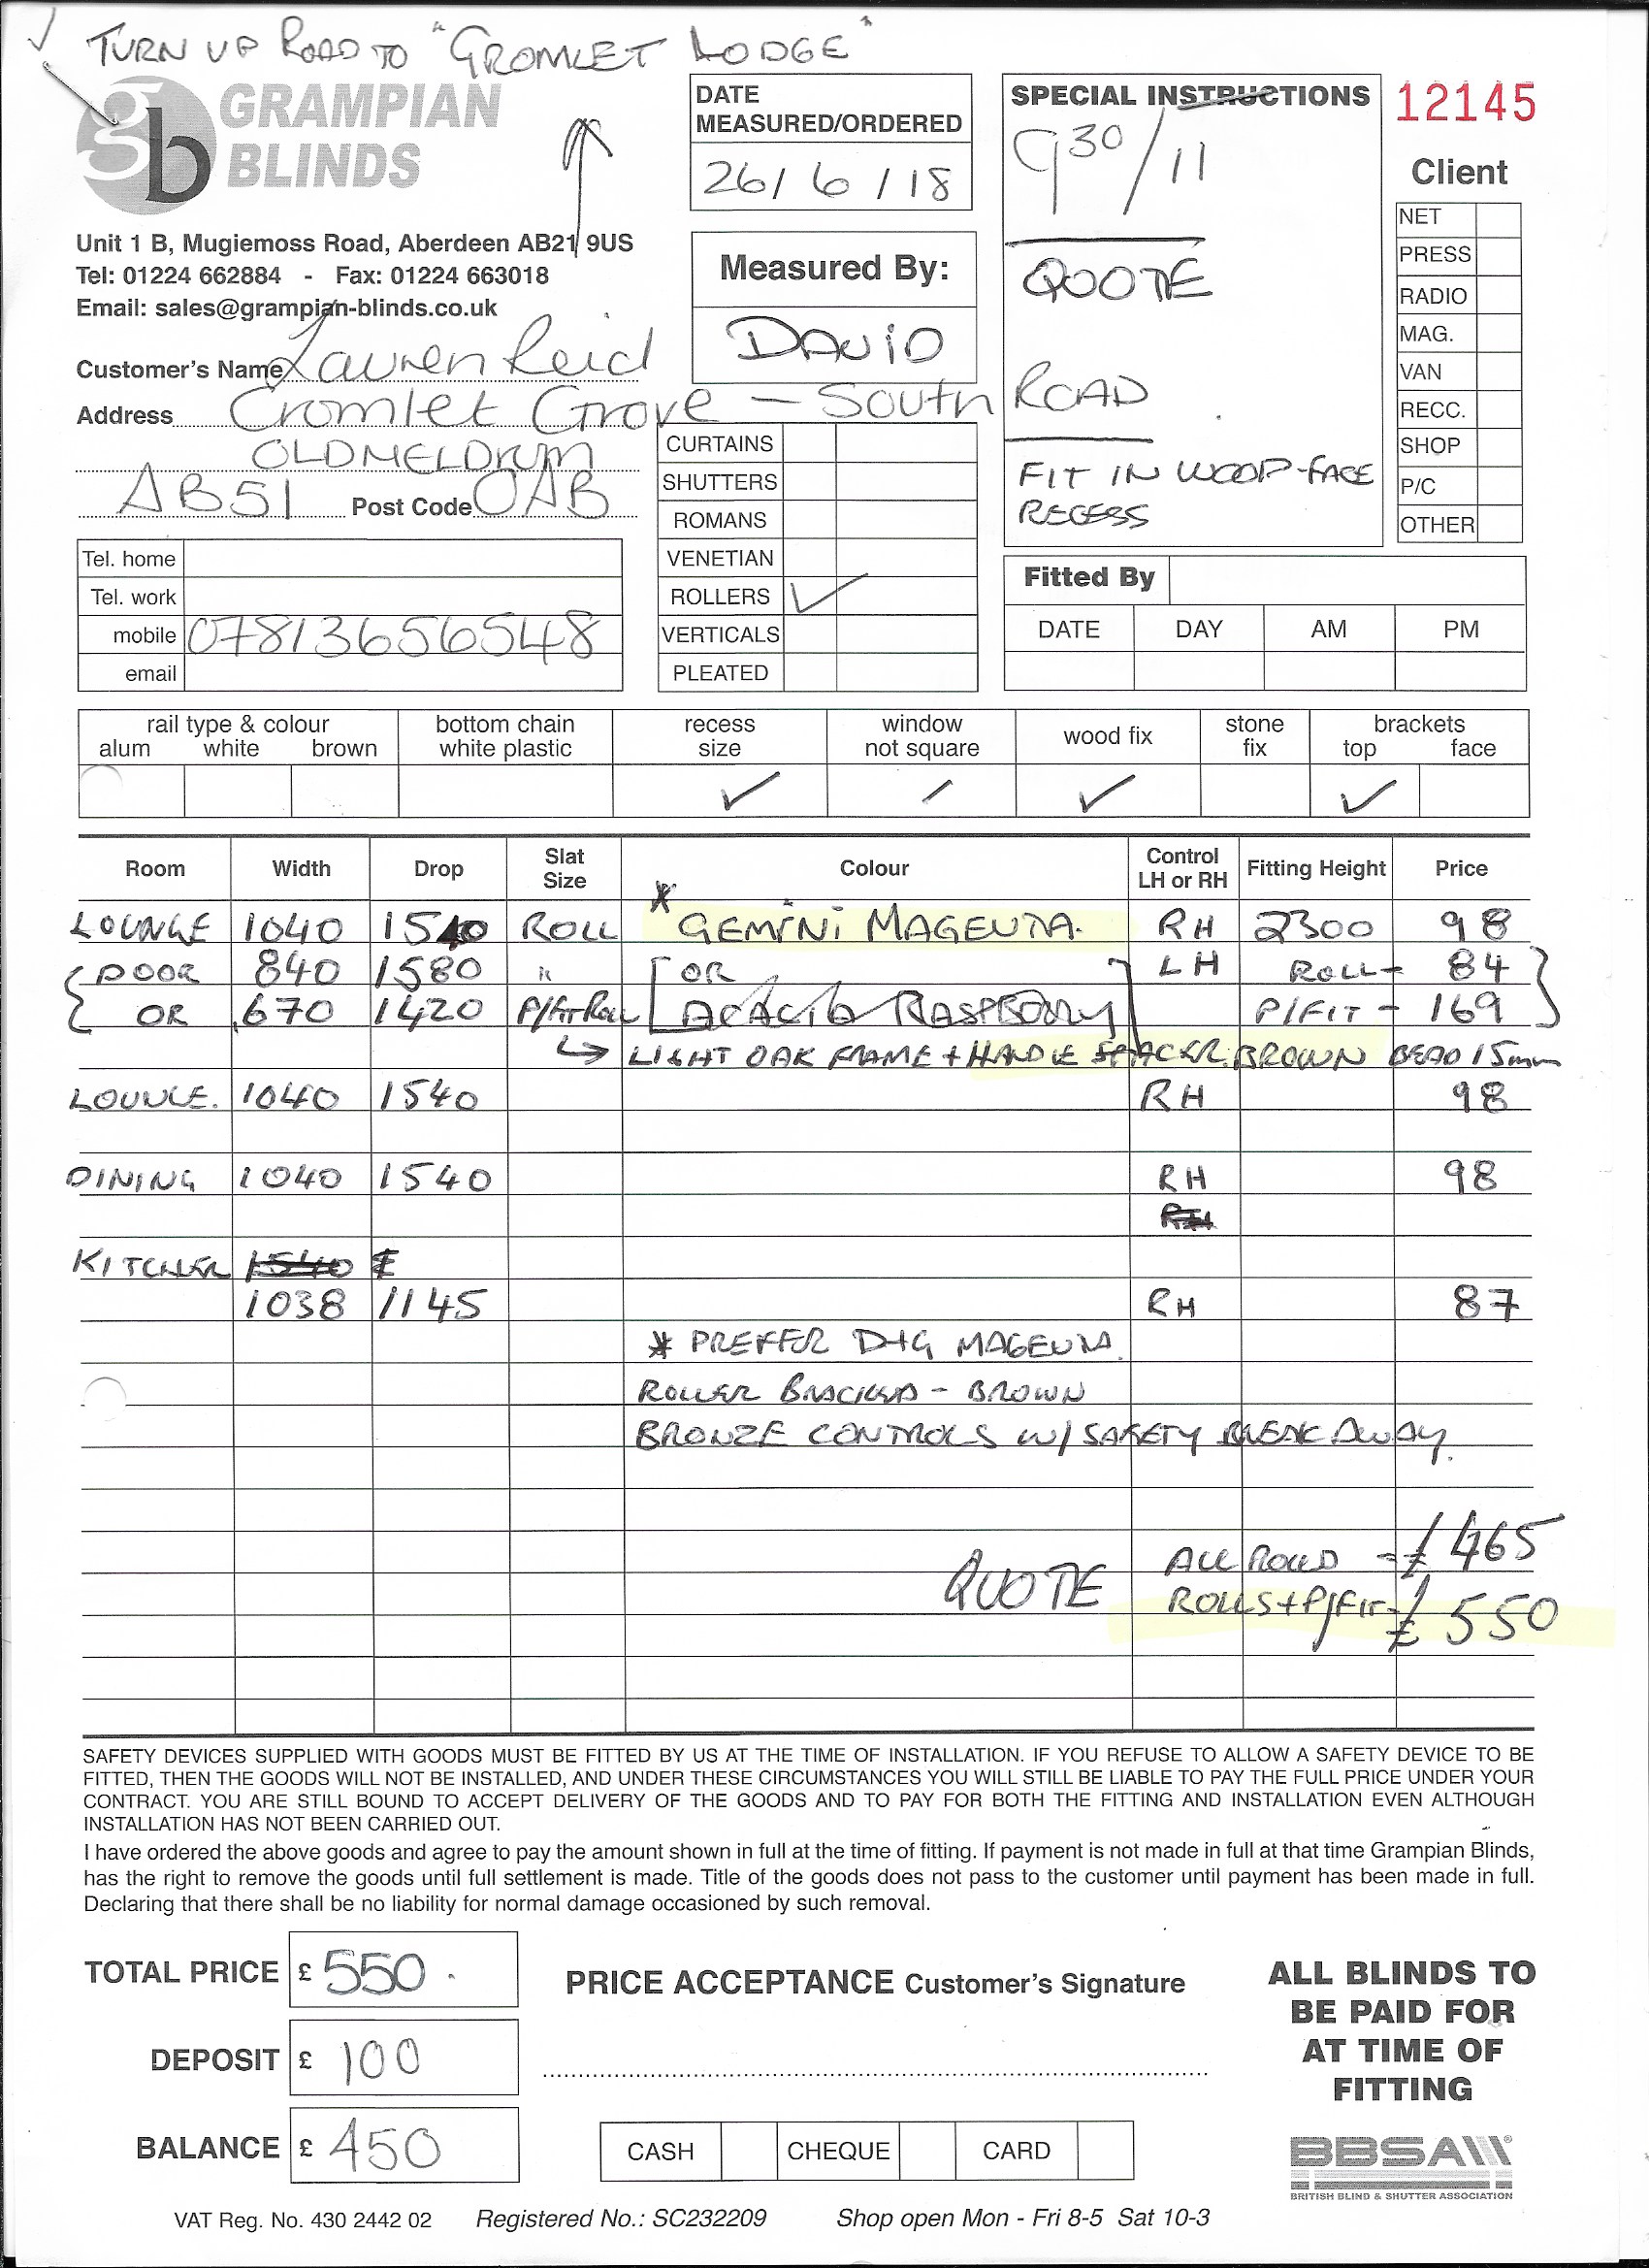 TURN UP ROAD TO "CROMLET LODGE"
GRAMPIAN
BLINDS
Unit 1 B, Mugiemoss Road, Aberdeen AB21 9US
Tel: 01224 662884 - Fax: 01224 663018
Email: sales@grampian-blinds.co.uk
DATE
MEASURED/ORDERED
26/6/18
Measured By:
DAVID
SPECIAL INSTRUCTIONS
9 30/11
QUOTE
FIT IN WOOD-FACE
RECESS
12145
Client
NET
PRESS
RADIO
MAG.
VAN
RECC.
SHOP
P/C
OTHER
Customer's Name Lauren Reid
Address Cromlet Grove - South ROAD
OLDMELDRUM
AB51 Post Code 0AB
Tel. home
Tel. work
mobile 07813656548
email
CURTAINS
SHUTTERS
ROMANS
VENETIAN
ROLLERS ✓
VERTICALS
PLEATED
Fitted By
DATE DAY AM PM
rail type & colour
alum white brown
bottom chain
white plastic
recess
size
window
not square
wood fix
stone
fix
brackets
top face
✓ / ✓ ✓
Room Width Drop Slat Size Colour Control LH or RH Fitting Height Price
LOUNGE 1040 1540 ROLL * GEMINI MAGENTA. RH 2300 98
DOOR 840 1580 " [OR LH ROLL - 84
OR 670 1420 P/Fit Roll ACACIA RASPBERRY] P/FIT - 169
↳ LIGHT OAK FRAME + HANDLE SPACER. BROWN BEAD 15mm
LOUNGE. 1040 1540 RH 98
DINING 1040 1540 RH 98
RH
KITCHEN 1540
1038 1145 RH 87
* PREFFER D+G MAGENTA.
ROLLER BRACKETS - BROWN
BRONZE CONTROLS W/ SAFETY BREAK AWAY.
QUOTE ALL ROLLS = £465
ROLLS + P/FIT - £550
SAFETY DEVICES SUPPLIED WITH GOODS MUST BE FITTED BY US AT THE TIME OF INSTALLATION. IF YOU REFUSE TO ALLOW A SAFETY DEVICE TO BE
FITTED, THEN THE GOODS WILL NOT BE INSTALLED, AND UNDER THESE CIRCUMSTANCES YOU WILL STILL BE LIABLE TO PAY THE FULL PRICE UNDER YOUR
CONTRACT. YOU ARE STILL BOUND TO ACCEPT DELIVERY OF THE GOODS AND TO PAY FOR BOTH THE FITTING AND INSTALLATION EVEN ALTHOUGH
INSTALLATION HAS NOT BEEN CARRIED OUT.
I have ordered the above goods and agree to pay the amount shown in full at the time of fitting. If payment is not made in full at that time Grampian Blinds,
has the right to remove the goods until full settlement is made. Title of the goods does not pass to the customer until payment has been made in full.
Declaring that there shall be no liability for normal damage occasioned by such removal.
TOTAL PRICE £ 550.
DEPOSIT £ 100
BALANCE £ 450
PRICE ACCEPTANCE Customer's Signature
CASH CHEQUE CARD
ALL BLINDS TO
BE PAID FOR
AT TIME OF
FITTING
BBSA
BRITISH BLIND & SHUTTER ASSOCIATION
VAT Reg. No. 430 2442 02 Registered No.: SC232209 Shop open Mon - Fri 8-5 Sat 10-3